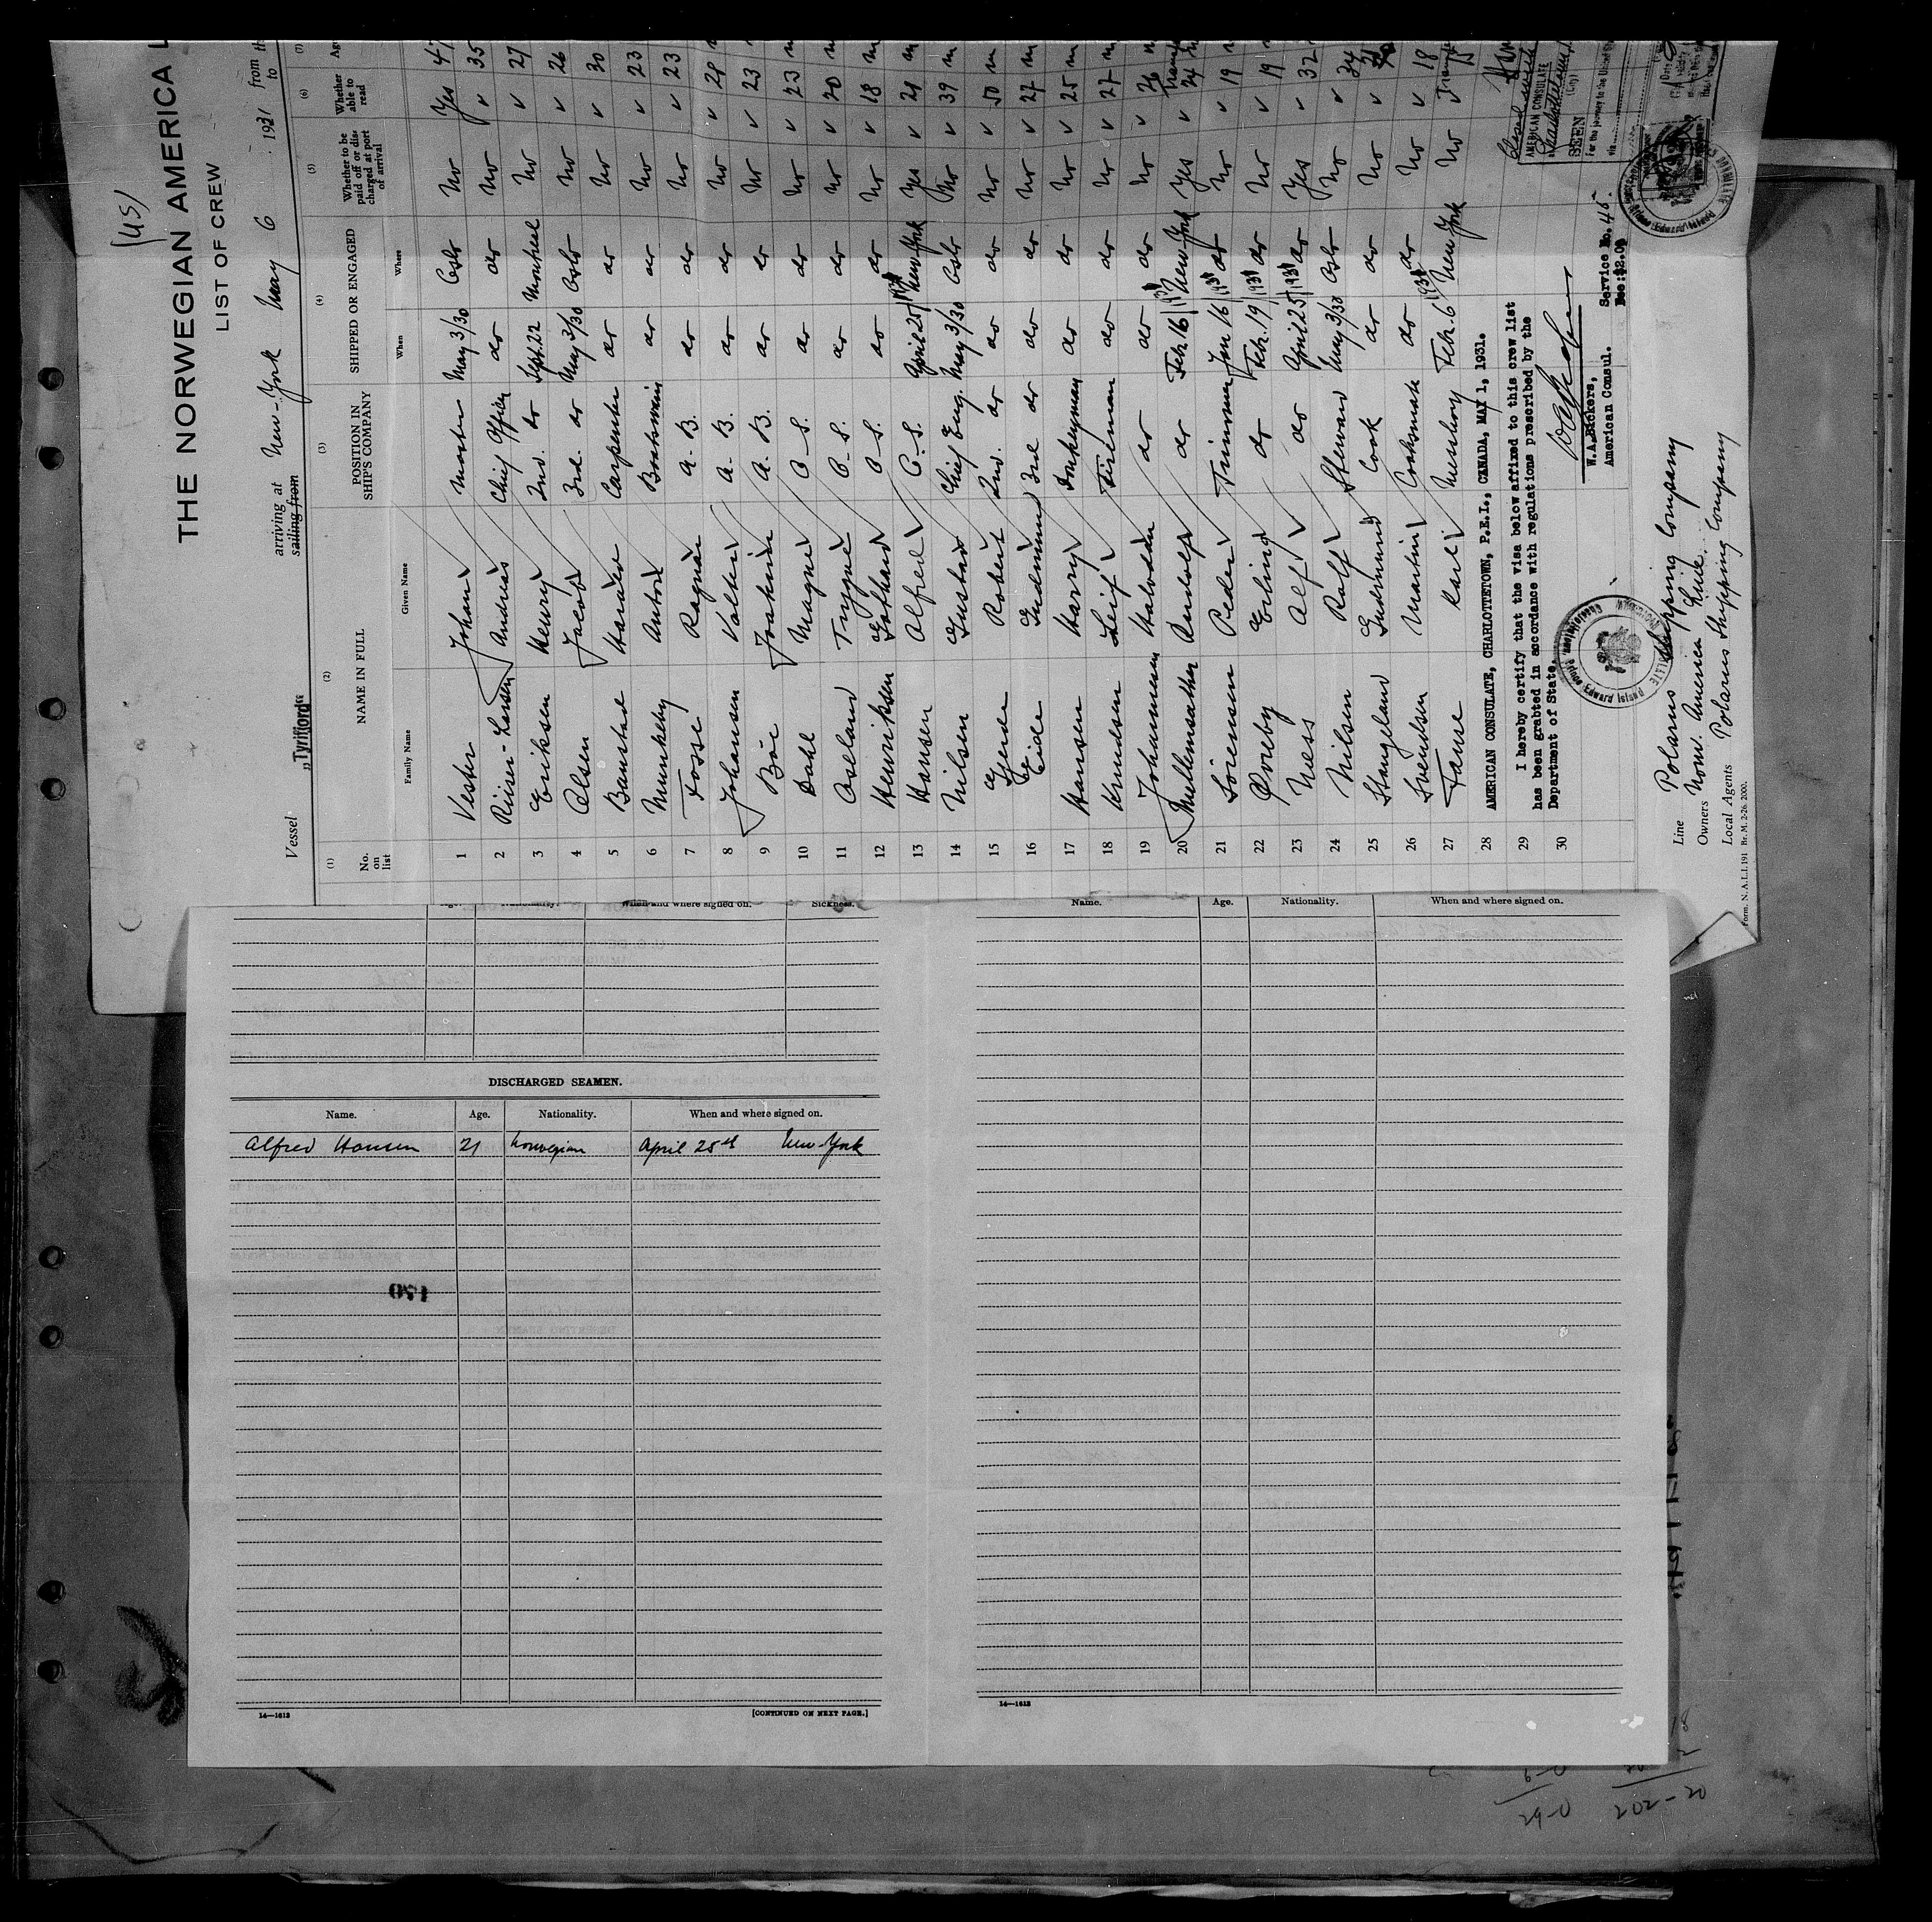 (US)
THE NORWEGIAN AMERICA L
LIST OF CREW
Vessel „Tyrifjord“ arriving at New-York May 6 1931 from th
sailing from to
(1) (2) (3) (4) (5) (6) (7)
No. on list NAME IN FULL POSITION IN SHIP'S COMPANY SHIPPED OR ENGAGED Whether to be paid off or discharged at port of arrival Whether able to read Ag
Family Name Given Name When Where
1 Vester Johan Master May 3/30 Oslo No Yes 47
2 Riiser-Larsen Andreas Chief Officer do do No ✓ 35
3 Eriksen Henry 2nd. do Sept. 22 Montreal No ✓ 27
4 Olsen Jacob 3rd. do May 3/30 Oslo No ✓ 26
5 Baustad Harald Carpenter do do No ✓ 30
6 Munkeby Anton Boatswain do do No ✓ 23
7 Fosse Ragnar A. B. do do No ✓ 23
8 Johansen Valter A. B. do do No ✓ 29
9 Böe Joakim A. B. do do No ✓ 23
10 Dahl Magne O-S. do do No ✓ 23
11 Aseland Trygve O-S. do do No ✓ 20
12 Henriksen Gothard O-S. do do No ✓ 18
13 Hansen Alfred O-S. April 25/1931 New-York Yes ✓ 21
14 Nilsen Gustav Chief Eng. May 3/30 Oslo No ✓ 39
15 Gjerde Robert 2nd. do do do No ✓ 50
16 Eide Gudmund 3rd do do do No ✓ 27
17 Hansen Harry Donkeyman do do No ✓ 25
18 Knudsen Leif Fireman do do No ✓ 27
19 Johannesen Halvdan do do do No ✓ 26
20 Mellemsather Anndolf do Feb. 16/1931 New-York Yes ✓ 24
21 Sörensen Peder Trimmer Jan 16 1931 do No ✓ 19
22 Øvreby Erling do Feb. 19/1931 do No ✓ 19
23 Ness Alf do April 25/1931 do Yes ✓ 32
24 Nilsen Ralf Steward May 3/30 Oslo No ✓ 34
25 Stangeland Gudmund Cook do do No ✓
26 Svendsen Martin Cooksmate do do No ✓ 18
27 Fause Karl Messboy Feb. 6/1931 New York No ✓
28 AMERICAN CONSULATE, CHARLOTTETOWN, P.E.I., CANADA, MAY 1, 1931.
29 I hereby certify that the visa below affixed to this crew list
has been granted in accordance with regulations prescribed by the
30 Department of State.
W.A. Bickers,
American Consul.
Service No. 45.
Fee: $2.00
AMERICAN CONSULATE
SEEN
(City)
For the journey to the United St
via
Prince Edward Island
Line Polarus Shipping Company
Owners Norw. America Line.
Local Agents Polarus Shipping Company
Form. N. A. L. I. 191 Br. M. 2-26. 2000.
Age. Nationality. When and where signed on. Sickness.
DISCHARGED SEAMEN.
Name. Age. Nationality. When and where signed on.
Alfred Hansen 21 Norwegian April 25th New-York
14—1613 [CONTINUED ON NEXT PAGE.]
Name. Age. Nationality. When and where signed on.
14—1613
29-0
202-20